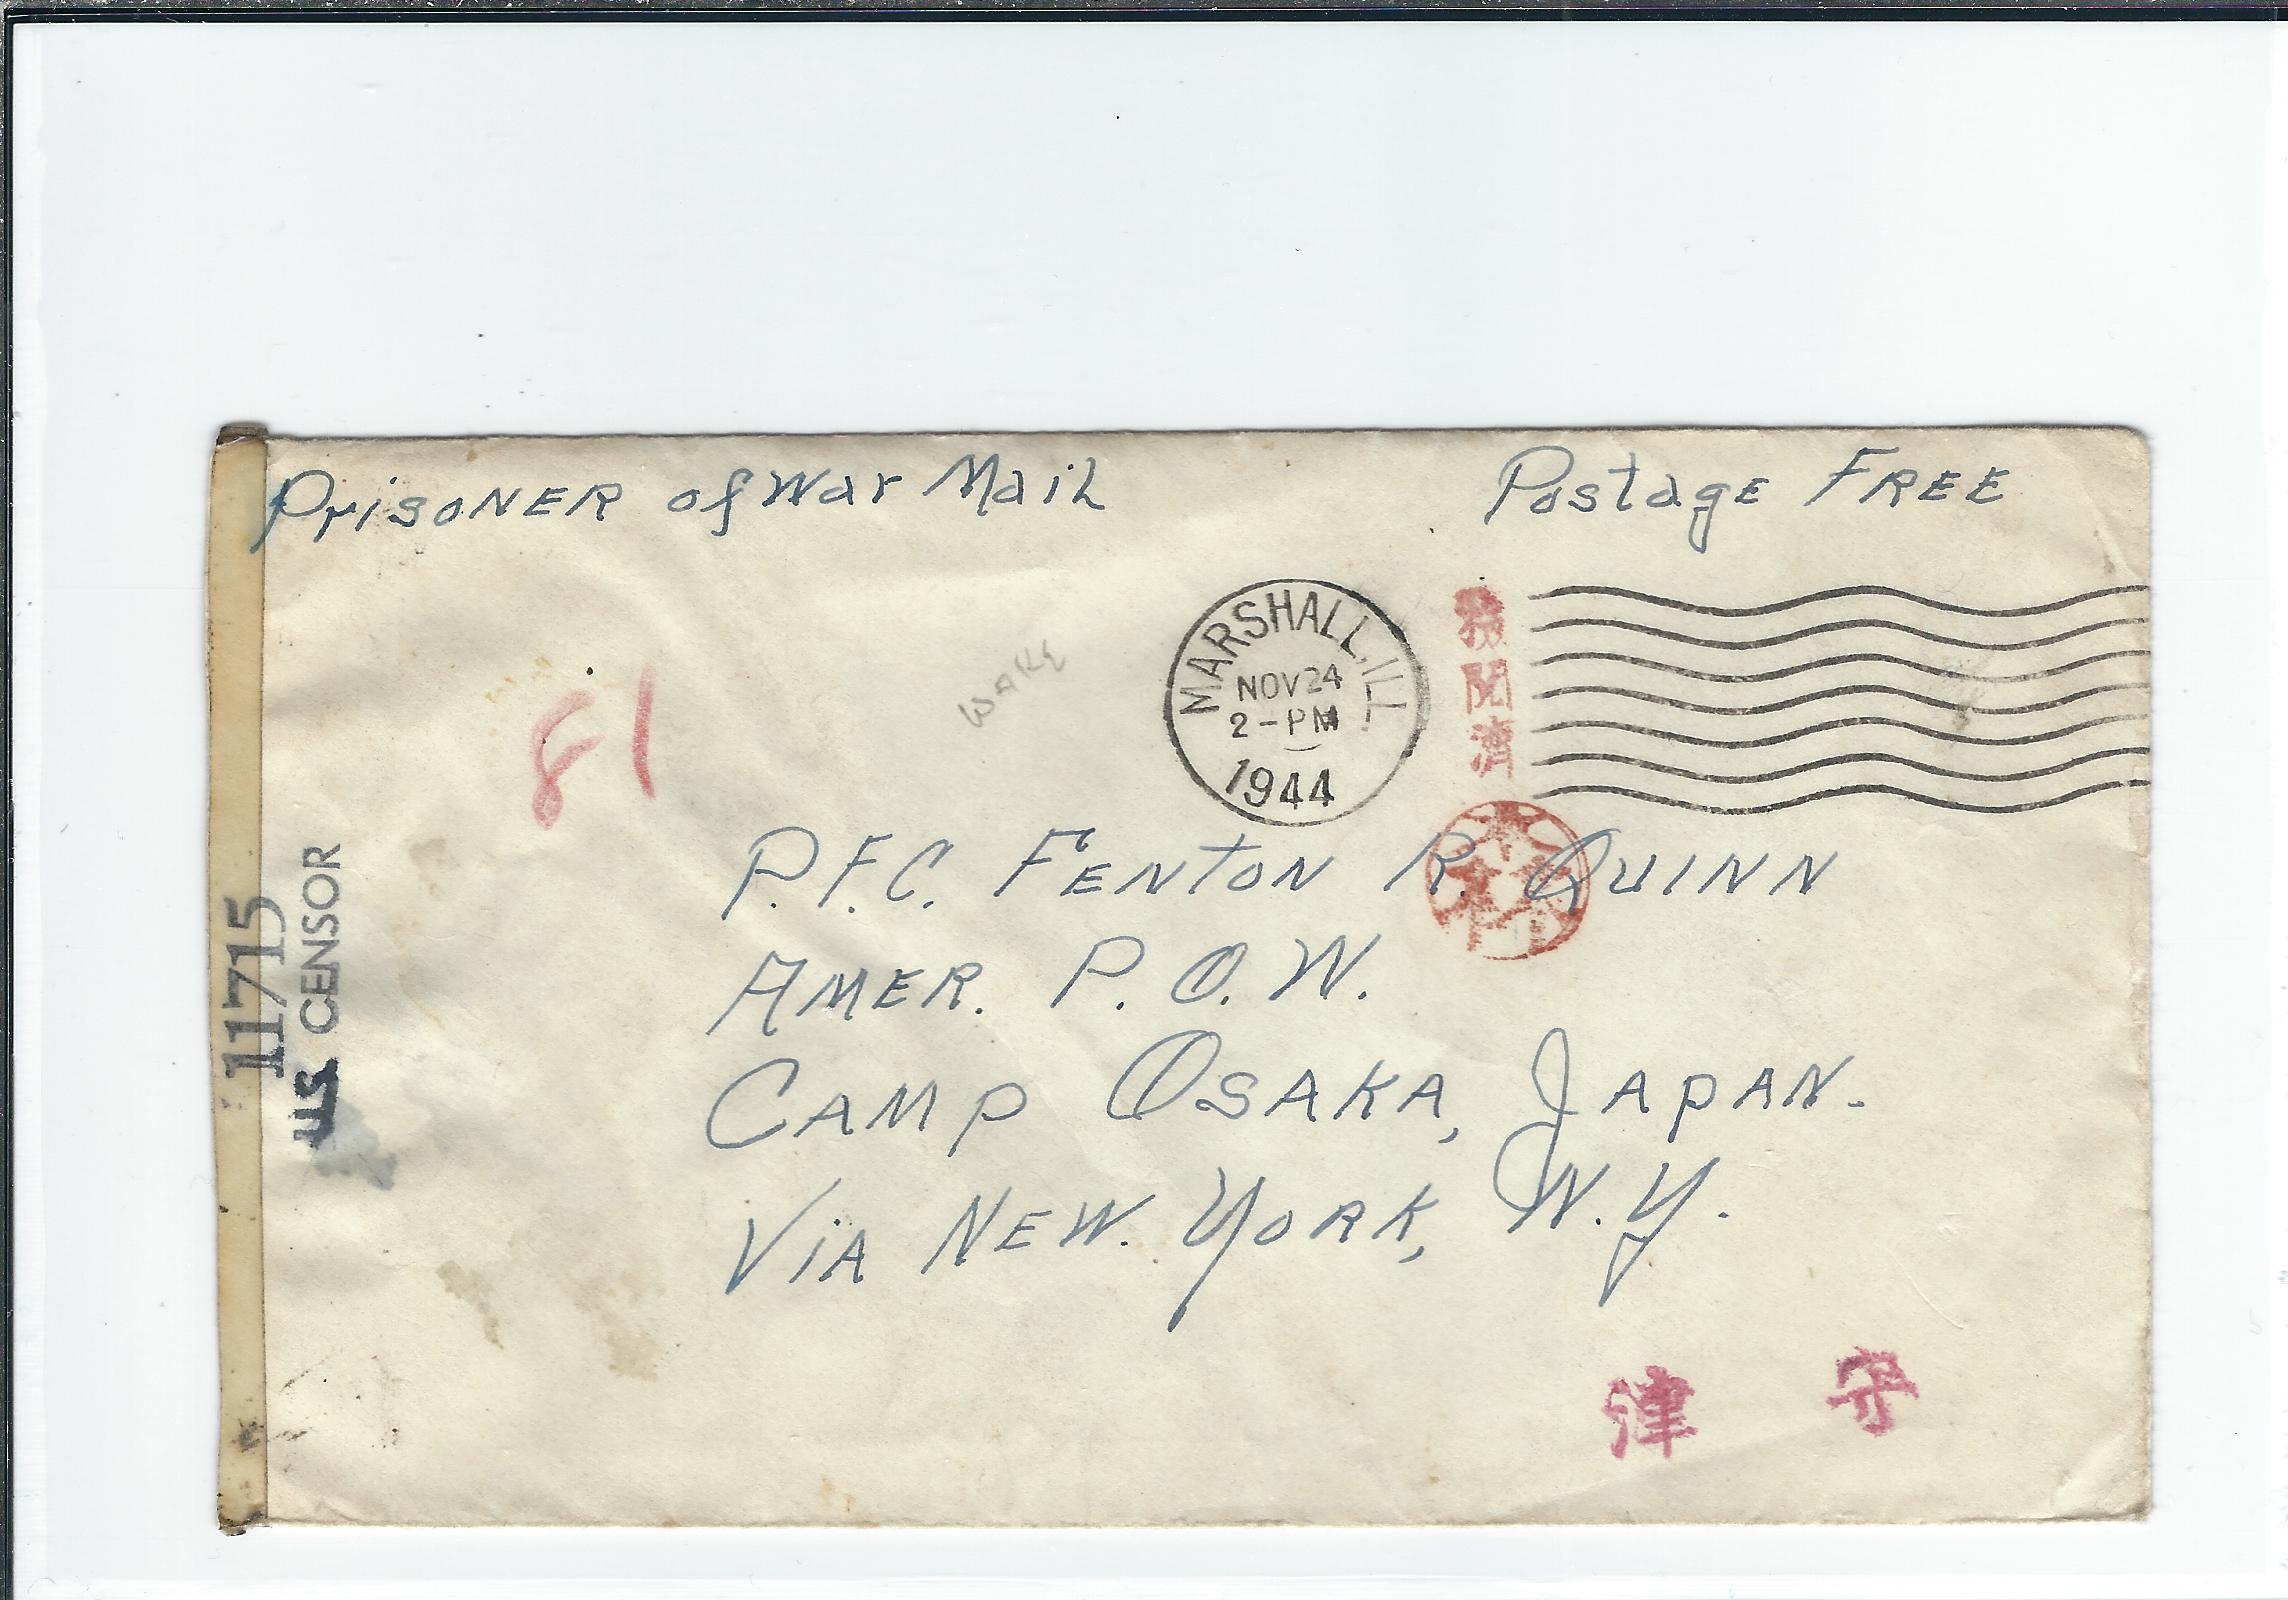 PRISONER of War Mail
Postage FREE
MARSHALL, ILL.
NOV 24
2-PM
1944
WAKE
81
11715
U.S. CENSOR
P.F.C. FENTON R. QUINN
AMER. P.O.W.
CAMP OSAKA, JAPAN.
VIA NEW. YORK, N.Y.
津 守